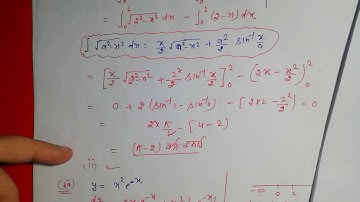 = ∫₀² √(2²-x²) dx - ∫₀² (2-x) dx
∫ √(a²-x²) dx = x/2 √(a²-x²) + a²/2 sin⁻¹ x/a
= [x/2 √(2²-x²) + 2²/2 sin⁻¹ x/2]₀² - (2x - x²/2)₀²
= 0 + 2 (sin⁻¹1 - sin⁻¹0) - [2×2 - 2²/2] - 0
= 2×π/2 - [4-2]
= (π-2) वर्ग इकाई
(ii)
y = x²e⁻ˣ
-∞ 0 2